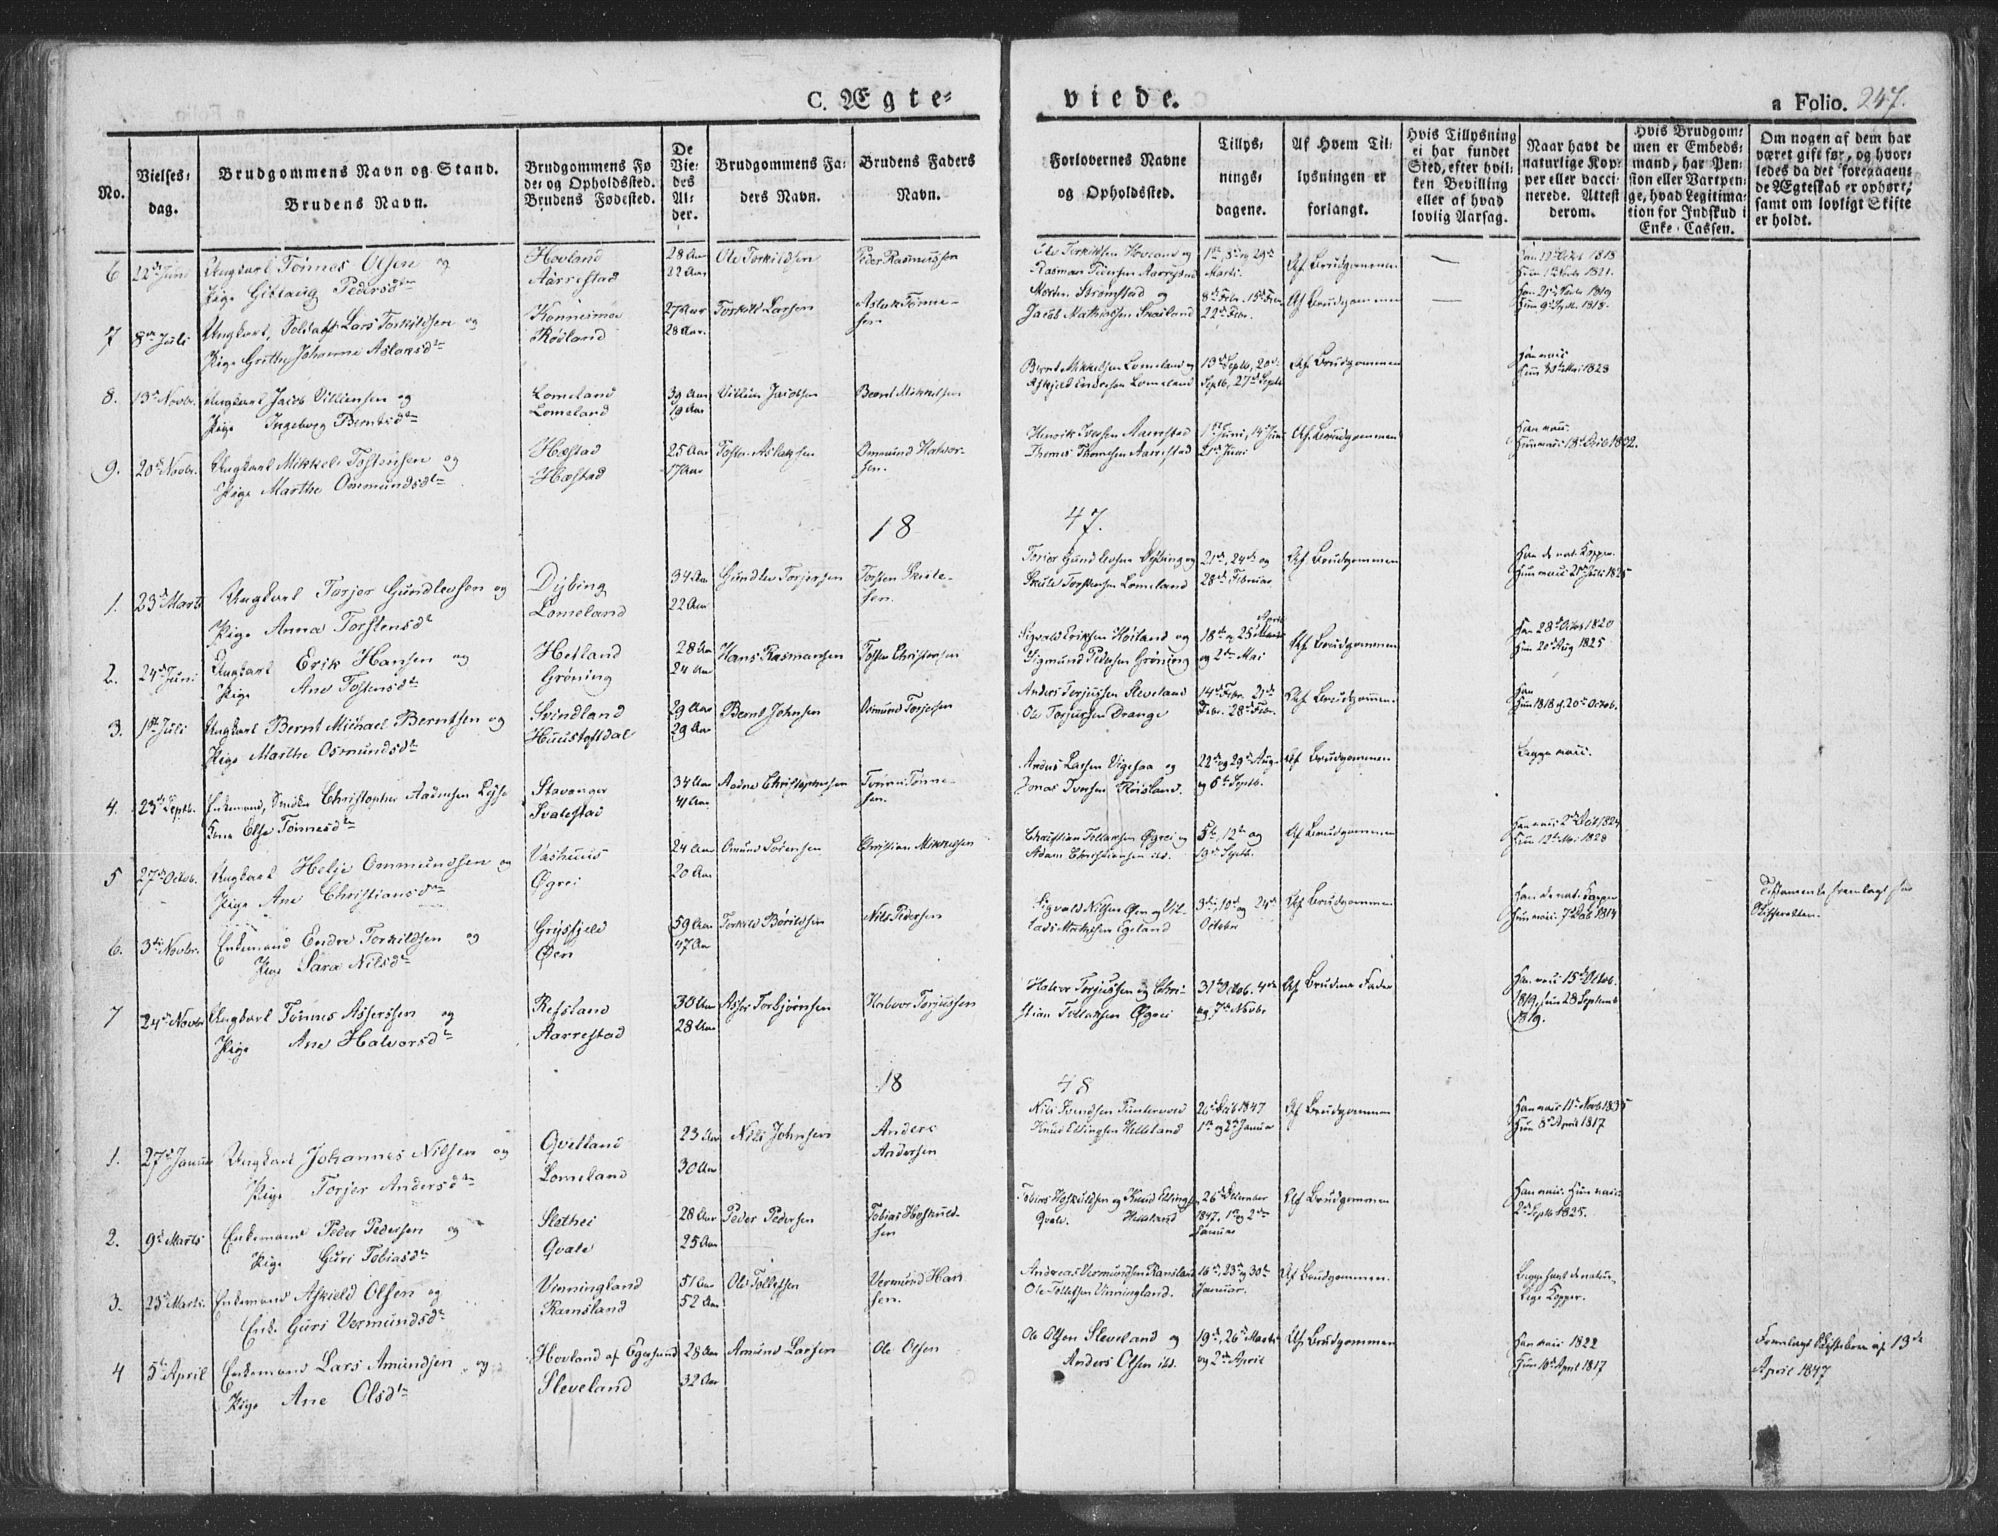 C. Ægte-
viede.
a Folio. 247.
No.
Vielses-
dag.
Brudgommens Navn og Stand.
Brudens Navn.
Brudgommens Fø
de- og Opholdssted.
Brudens Fødested.
De
Vie-
des
Al-
der.
Brudgommens Fa-
ders Navn.
Brudens Faders
Navn.
Forlovernes Navne
og Opholdssted.
Tillys-
nings-
dagene.
Af Hvem Til-
lysningen er
forlangt.
Hvis Tillysning
ei har fundet
Sted, efter hvil-
ken Bevilling
eller af hvad
lovlig Aarsag.
Naar havt de
naturlige Kop-
per eller vacci-
nerede. Attest
derom.
Hvis Brudgom-
men er Embeds-
mand, har Pen-
sion eller Vartpen-
ge, hvad Legitima-
tion for Indskud i
Enke-Cassen.
Om nogen af dem har
været gift før, og hvor-
ledes da det foregaaen-
de Ægteskab er ophørt,
samt om lovligt Skifte
er holdt.
6 22de Juni Ungkarl Tønnes Olsen og
Pige Gittaug Pedersdtr
Hovland
Aarrestad
28 Aar
22 Aar
Ole Torkildsen
Peder Rasmussen
Ole Torkildsen Hovland og
Rasmus Pedersen Aarrestad
Marts
Af Brudgommen
—
7 8de Juli Ungkarl, Soldat Lars Torkildsen og
Pige Grethe Johanne Aslaksdtr
Skoland
27 Aar
28 Aar
Torkild Larsen
Aslak Tønne-
sen
Morten Strømstad og
Jacob Mathiasen Skaaland
8de Febr. 15de Febr.
22de Febr.
Af Brudgommen
—
Hun 9de Septb. 1818.
8. 13de Novbr. Ungkarl Jacob Villumsen og
Pige Ingeborg Berntsdtr
Lomeland
Lomeland
39 Aar
19 Aar
Villum Jacobsen
Bernt Mikkelsen
Bernt Mikkelsen Lomeland og
Askjeld Endresen Lomeland
13de Septb, 20de
Septb, 27de Septb
Af Brudgommen
Han vacc.
9. 20de Novbr. Ungkarl Mikkel Tostensen og
Pige Marthe Ommundsdtr
Hæstad
Hæstad
25 Aar
17 Aar
Tosten Aslaksen
Ommund Halvor-
sen.
Henrik Iversen Aarrestad
Thomas Thomesen Aarrestad
1ste Juni, 14de Juni
21de Juni
Af Brudgommen
Han vacc.
18 47.
1. 23de Marts Ungkarl Torjer Gundlevsen og
Pige Anna Torstensdtr
Dybing
Lomeland
34 Aar
22 Aar
Gundlev Torjersen
Torsten Skule-
sen.
Torjer Gundlevsen Dybing og
Skule Torstensen Lomeland
21de, 24de og
28de Februar
Af Brudgommen
Han de nat. Kopper.
Hun vacc. 21de Juli 1825
2. 24de Juni Ungkarl Erik Hansen og
Pige Ane Tostensdtr
Hetland
Grøning
28 Aar
24 Aar
Hans Rasmussen
Tosten Christensen
Sigvald Eriksen Høiland og
Sigmund Pedersen Grøning
April
18de og 25de
og 2den Mai
Af Brudgommen
Han 28de Octob 1820
Hun 20de Aug 1825
3. 1ste Juli Ungkarl Bernt Michael Berntsen og
Pige Marthe Osmundsdtr
Svindland
Huustoftdal
29 Aar
29 Aar
Bernt Johnsen
Osmund Torjesen
Anders Torjussen Sleveland
Ole Torjussen Drange
14de Febr. 21de
Febr. 28de Febr.
Af Brudgommen
Han
Hun 1818 d. 20de Octob.
4. 23de Septb. Enkemand, Snedker Christopher Aadnesen Lyse
Kone Else Tønnesdtr
Stavanger
Svalestad
34 Aar
41 Aar
Aadne Christophersen
Tønne-
sen.
Anders Larsen Vigesaa og
Jonas Iversen Røisland.
22de og 29de Aug.
og 5te Septb.
Af Brudgommen
Begge vacc.
5 27de Octob. Ungkarl Helje Ommundsen og
Pige Ane Christiansdtr
Vashuus
Øgrei
24 Aar
20 Aar
Omund Sørensen
Christian Mikkelsen
Christian Tollaksen Øgrei og
Adam Christiansen ibd.
5te, 12te og
19de Septb.
Af Brudgommen
Hun 12te Mai 1828
6. 3die Novbr. Enkemand Endre Torkildsen og
Pige Sara Nilsdtr
Grysfjeld
Øen
59 Aar
47 Aar
Torkild Børildsen
Nils Pedersen
Sigvald Nilsen Øen og
Egeland
3die, 10de og 24de
October
Af Brudgommen
Han de nat. Kopper
Hun vacc. 7de Octob 1814
Testamente fremlagt fra
Skifteretten.
7 24de Novbr Ungkarl Tønnes Asserssen og
Pige Ane Halvorsdtr
Refsland
Aarrestad
30 Aar
28 Aar
Asser Torbjørnsen
Halvor Torjussen
Halvor Torjussen og Chri-
stian Tollaksen Øgrei
31te Octob. 4de
og 7de Novbr
Af Brudens Fader
Han vacc 15de Octob.
1819, hun 28 Septemb
1819.
18 48
1. 27de Januar Ungkarl Johannes Nilsen og
Pige Torjer Andersdtr
Qvelland
Lomeland
23 Aar
30 Aar
Nils Johnsen
Anders
Andersen
Nils Svendsen Puntervold
Knud Ellingsen Helleland
26de Decb 1847
1ste og 2de Januar
Af Brudgommen
Han vacc 11te Novb 1835
Hun 8de April 1817
2. 9de Marts Enkemand Peder Pedersen og
Pige Guri Tobiasdtr
Slethei
Qvale
28 Aar
25 Aar
Peder Pedersen
Tobias Hoskuld-
sen
Tobias Hoskuldsen og Knud Ellingsen
Qvale. Helleland
26de December
1847, 1ste og 2den
Januar
Af Brudgommen
Han vacc. Hun vacc.
2de Septb 1825.
3. 23de Marts. Enkemand Askield Olsen og
Enke Guri Vermundsdtr
Vinningland
Ramsland
51 Aar
52 Aar
Ole Tollefsen
Vermund Han
sen.
Andreas Vermundsen Ramsland
Ole Tollefsen Vinningland.
16de, 23de og 30te
Januar.
Af Brudgommen.
Begge havt de natur-
lige Kopper.
4 5te April Enkemand Lars Amundsen og
Pige Ane Olsdtr
Hovland af Egersund
Sleveland
28 Aar
32 Aar
Amund Larsen
Ole Olsen
Ole Olsen Sleveland og
Anders Olsen ibd.
19de, 26de Marts
og 2den April
Af Brudgommen
Han vacc 1822
Hun 10de April 1817
Fremlagt Skiftebrev af 13de
April 1847